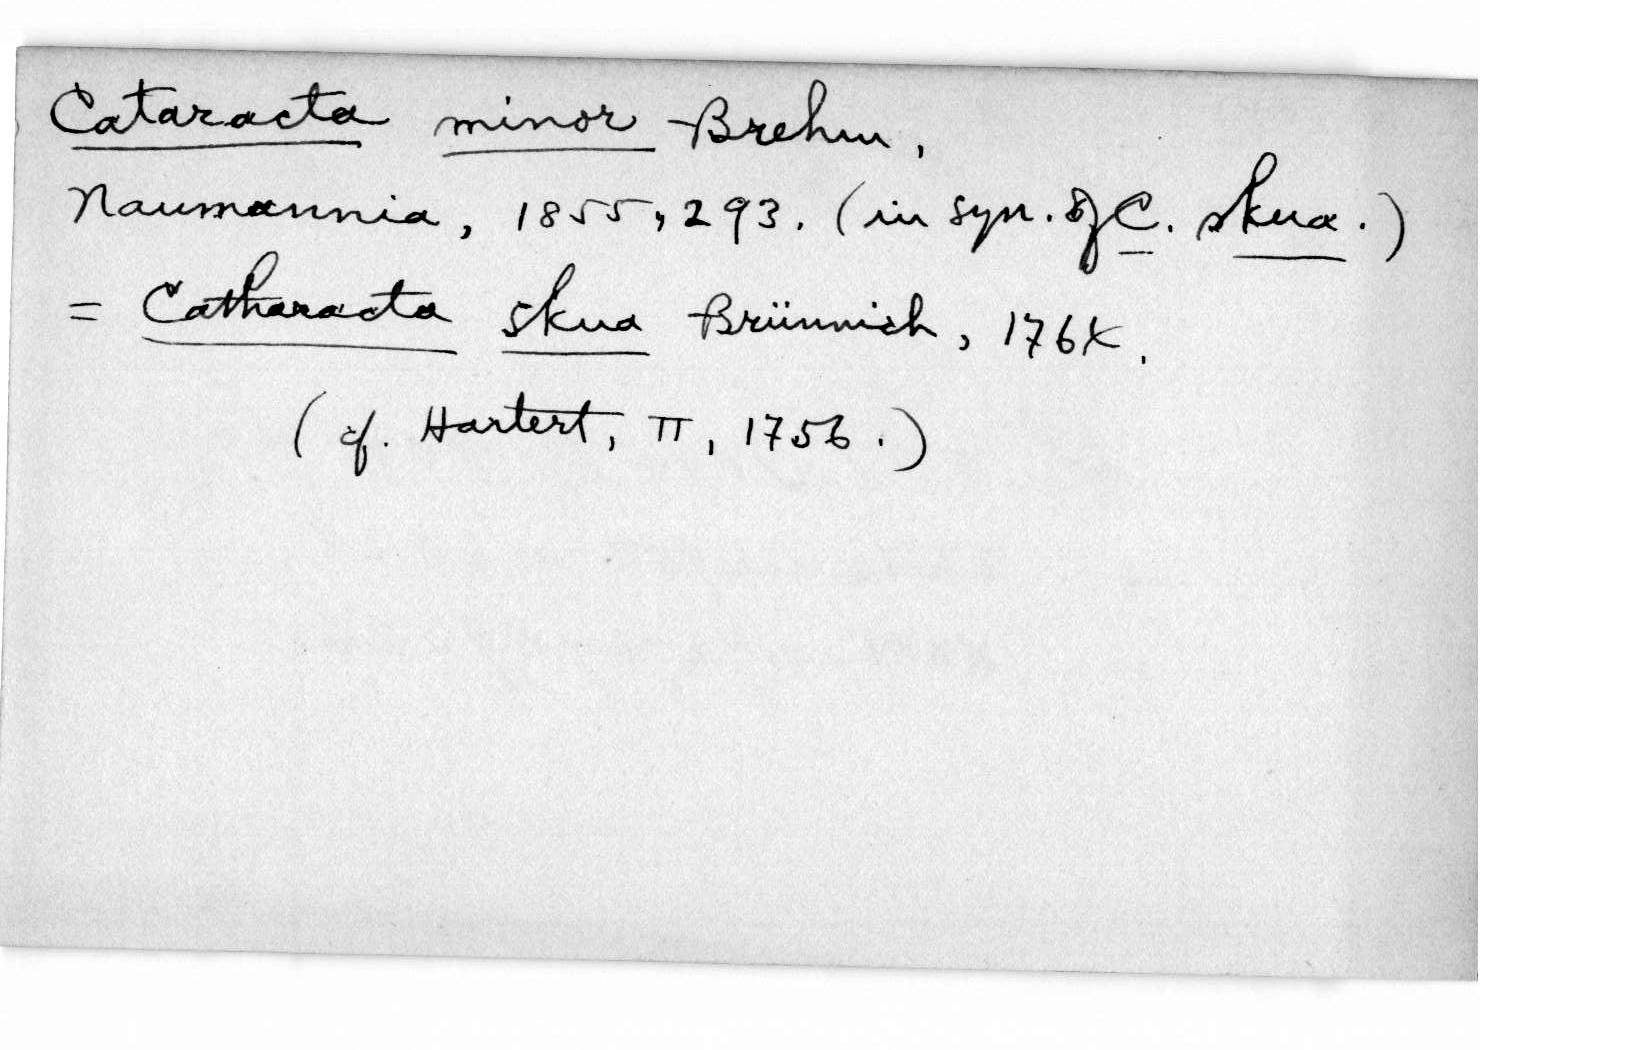 Cataracta minor Brehm,
Naumannia, 1855, 293. (in syn. of C. skua.)
= Catharacta skua Brünnich, 1764.
(cf. Hartert, II, 1756.)